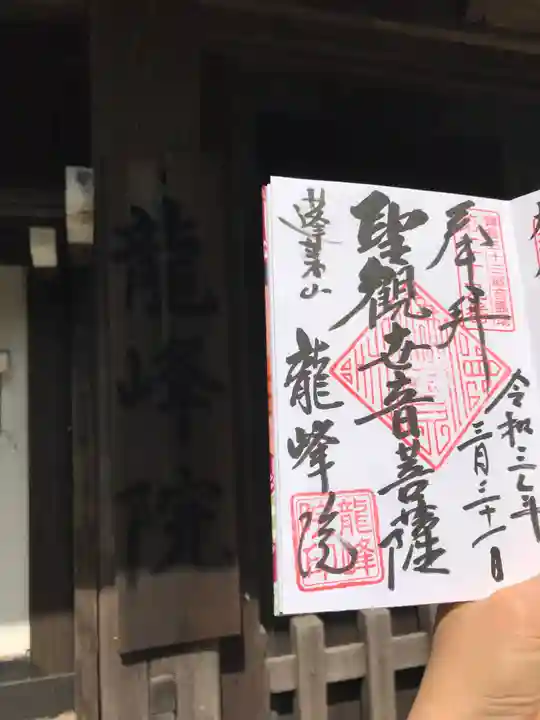 龍峰院
奉拝
令和三乙年
三月三十一日
聖観世音菩薩
蓬莱山
龍峰院
龍峰
院印